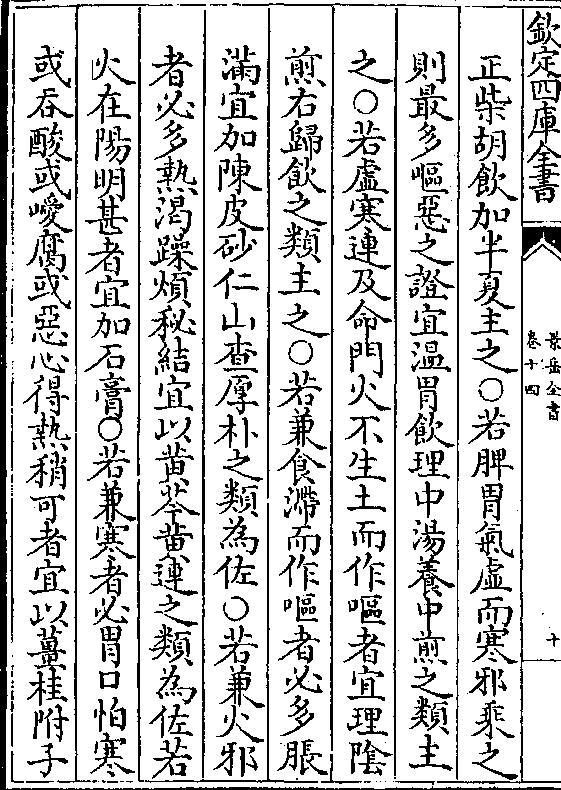 欽定四庫全書
景岳全書
卷十四
十
正柴胡飲加半夏主之○若脾胃氣虛而寒邪乘之
則最多嘔惡之證宜溫胃飲理中湯養中煎之類主
之○若虛寒連及命門火不生土而作嘔者宜理隂
煎右歸飲之類主之○若兼食滯而作嘔者必多脹
滿宜加陳皮砂仁山查厚朴之類為佐○若兼火邪
者必多熱渴躁煩秘結宜以黄芩黄連之類為佐若
火在陽明甚者宜加石膏○若兼寒者必胃口怕寒
或吞酸或噯腐或惡心得熱稍可者宜以薑桂附子